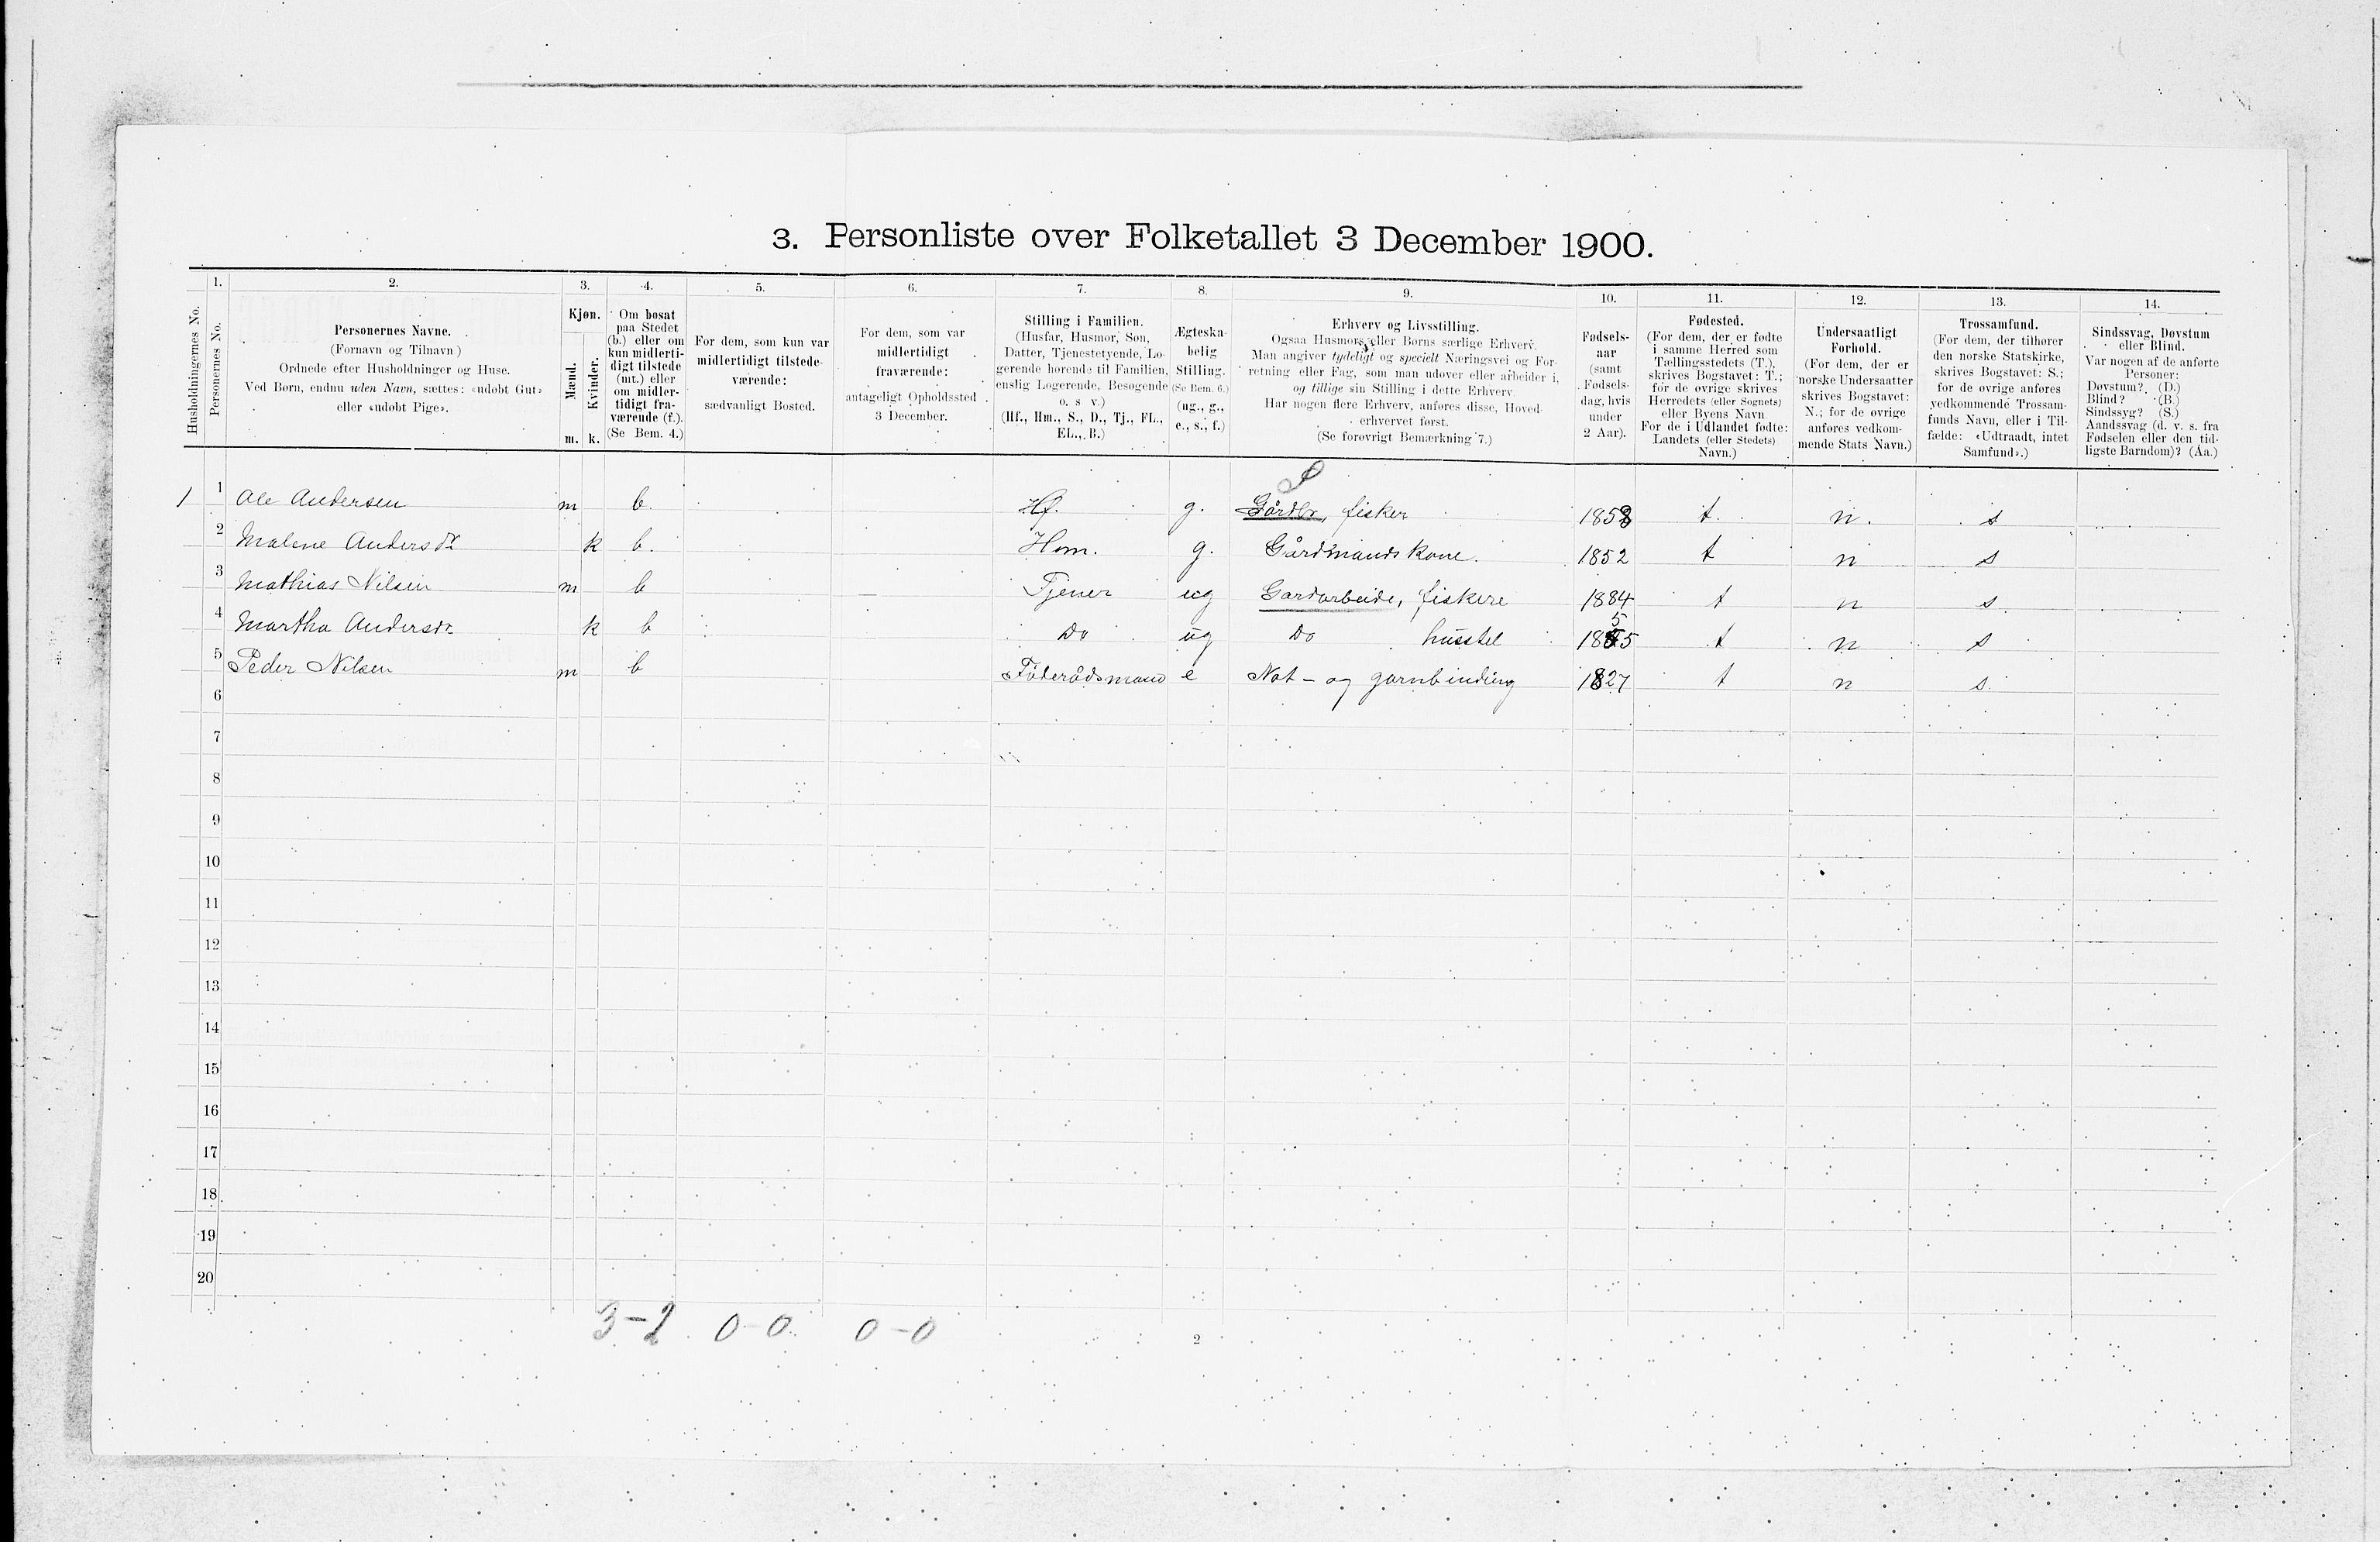 3. Personliste over Folketallet 3 December 1900.
1. 2. 3. 4. 5. 6. 7. 8. 9. 10. 11. 12. 13. 14.
Husholdningernes No.
Personernes No.
Personernes Navne.
(Fornavn og Tilnavn)
Ordnede efter Husholdninger og Huse.
Ved Børn, endnu uden Navn, sættes: «udøbt Gut»
eller «udøbt Pige».
Kjøn.
Mænd.
Kvinder.
m. k.
Om bosat
paa Stedet
(b.) eller om
kun midlerti-
digt tilstede
(mt.) eller
om midler-
tidigt fra-
værende (f.).
(Se Bem. 4.)
For dem, som kun var
midlertidigt tilstede-
værende:
sædvanligt Bosted.
For dem, som var
midlertidigt
fraværende:
antageligt Opholdssted
3 December.
Stilling i Familien.
(Husfar, Husmor, Søn,
Datter, Tjenestetyende, Lo-
gerende hørende til Familien,
enslig Logerende, Besøgende
o. s. v.)
(Hf., Hm., S., D., Tj., FL.,
EL., B.)
Ægteska-
belig
Stilling.
(Se Bem. 6.)
(ug., g.,
e., s., f.)
Erhverv og Livsstilling.
Ogsaa Husmors eller Børns særlige Erhverv.
Man angiver tydeligt og specielt Næringsvei og For-
retning eller Fag, som man udøver eller arbeider i,
og tillige sin Stilling i dette Erhverv
Har nogen flere Erhverv, anføres disse, Hoved-
erhvervet først.
(Se forøvrigt Bemærkning 7.)
Fødsels-
aar
(samt
Fødsels-
dag, hvis
under
2 Aar).
Fødested.
(For dem, der er fødte
i samme Herred som
Tællingsstedets (T.),
skrives Bogstavet: T.;
for de øvrige skrives
Herredets (eller Sognets)
eller Byens Navn
For de i Udlandet fødte:
Landets (eller Stedets)
Navn.)
Undersaatligt
Forhold.
(For dem, der er
norske Undersaatter
skrives Bogstavet:
N.; for de øvrige
anføres vedkom-
mende Stats Navn.)
Trossamfund.
(For dem, der tilhører
den norske Statskirke,
skrives Bogstavet: S.;
for de øvrige anføres
vedkommende Trossam-
funds Navn, eller i Til-
fælde: «Udtraadt, intet
Samfund».)
Sindssvag, Døvstum
eller Blind.
Var nogen af de anførte
Personer:
Døvstum? (D.)
Blind? (B.)
Sindssyg? (S.)
Aandssvag (d. v. s. fra
Fødselen eller den tid-
ligste Barndom)? (Aa.)
1 1 Ole Andersen m b. Hf. g. Gårdbr, fisker 1858 t. n. s
2 Malene Andersdr k b. Hm. g. Gårdmands kone. 1852 t n s
3 Mathias Nilsen m b Tjener ug Gardarbeide, fiskere 1884 t n s.
4 Martha Andersdr k b Do ug Do husstel 1855 t n s
5 Peder Nilsen m b Föderådsmand e Not- og garnbinding 1827 t n s.
6
7
8
9
10
11
12
13
14
15
16
17
18
19
20
3-2 0-0 0-0
2